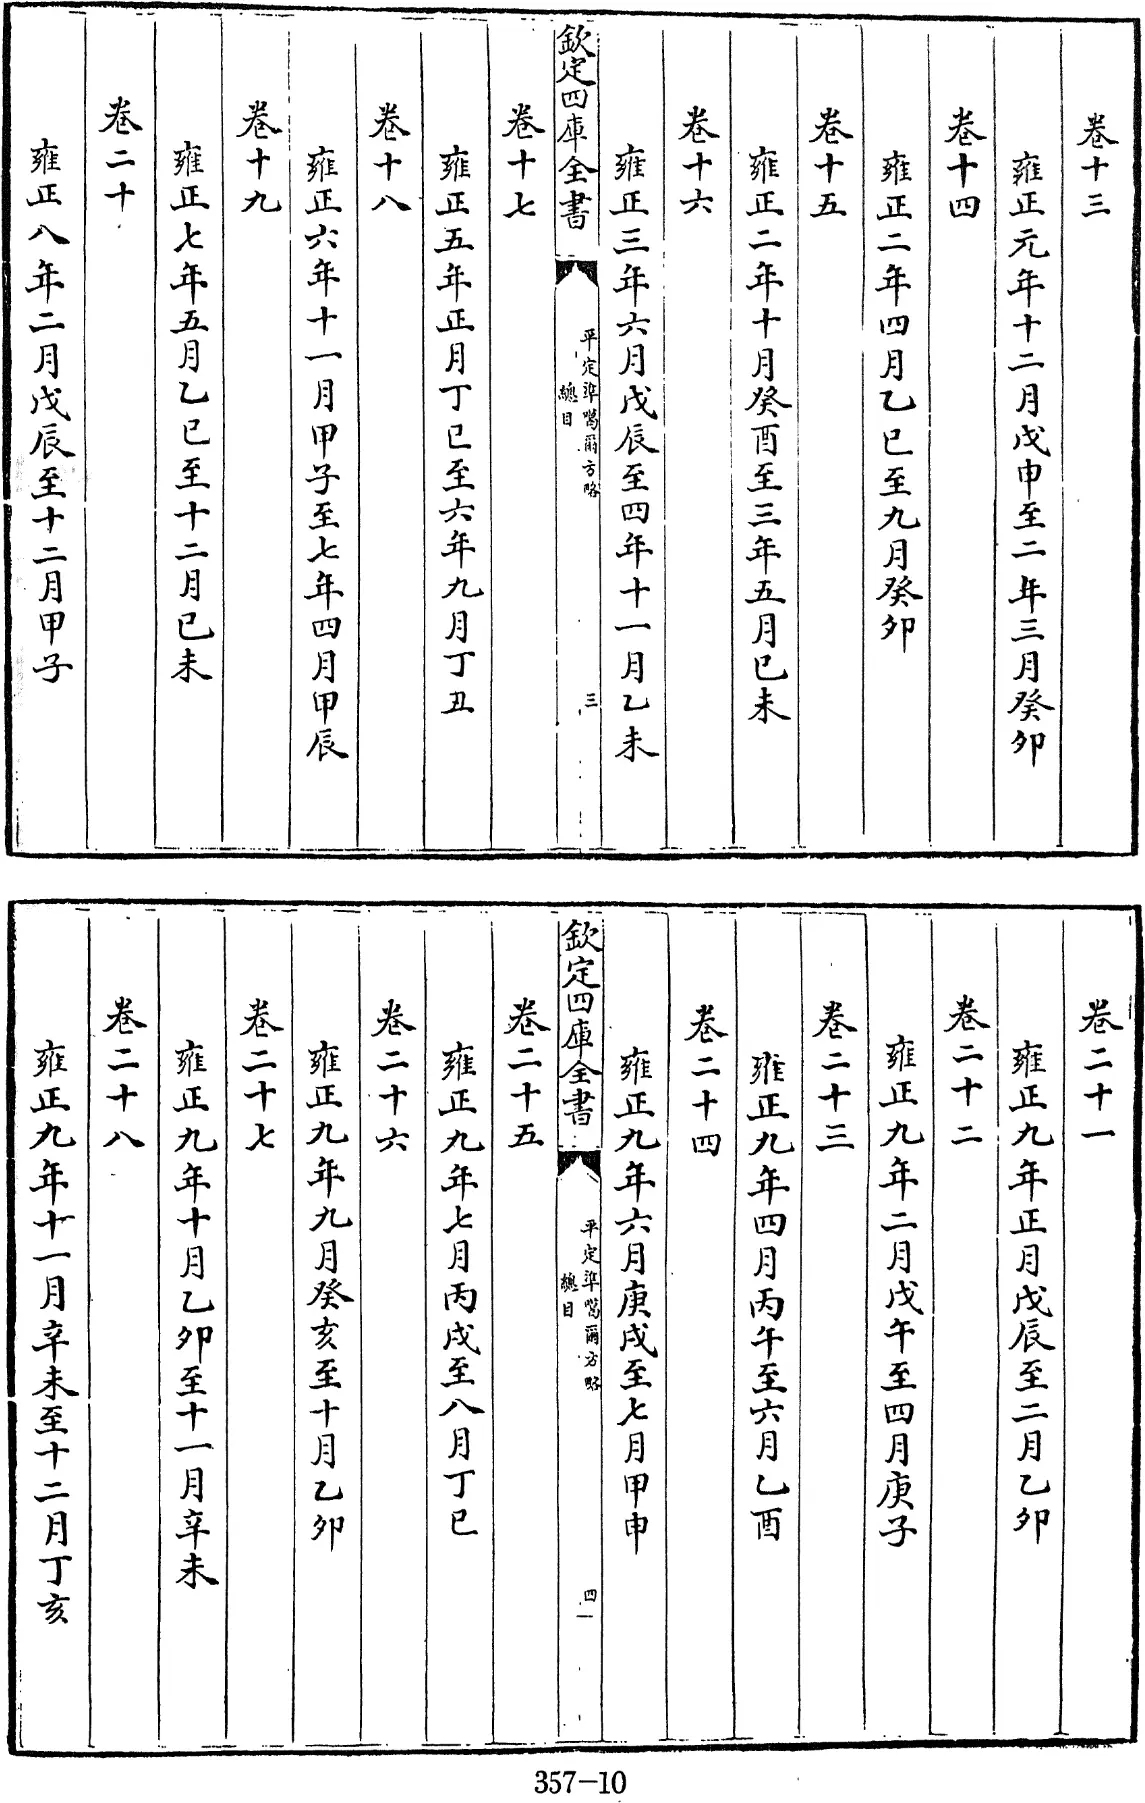 卷十三
雍正元年十二月戊申至二年三月癸卯
卷十四
雍正二年四月乙巳至九月癸卯
卷十五
雍正二年十月癸酉至三年五月己未
卷十六
雍正三年六月戊辰至四年十一月乙未
欽定四庫全書
平定準噶爾方略
總目
三
卷十七
雍正五年正月丁巳至六年九月丁丑
卷十八
雍正六年十一月甲子至七年四月甲辰
卷十九
雍正七年五月乙巳至十二月己未
卷二十
雍正八年二月戊辰至十二月甲子
卷二十一
雍正九年正月戊辰至二月乙卯
卷二十二
雍正九年二月戊午至四月庚子
卷二十三
雍正九年四月丙午至六月乙酉
卷二十四
雍正九年六月庚戌至七月甲申
欽定四庫全書
平定準噶爾方略
總目
四
卷二十五
雍正九年七月丙戌至八月丁巳
卷二十六
雍正九年九月癸亥至十月乙卯
卷二十七
雍正九年十月乙卯至十一月辛未
卷二十八
雍正九年十一月辛未至十二月丁亥
357-10